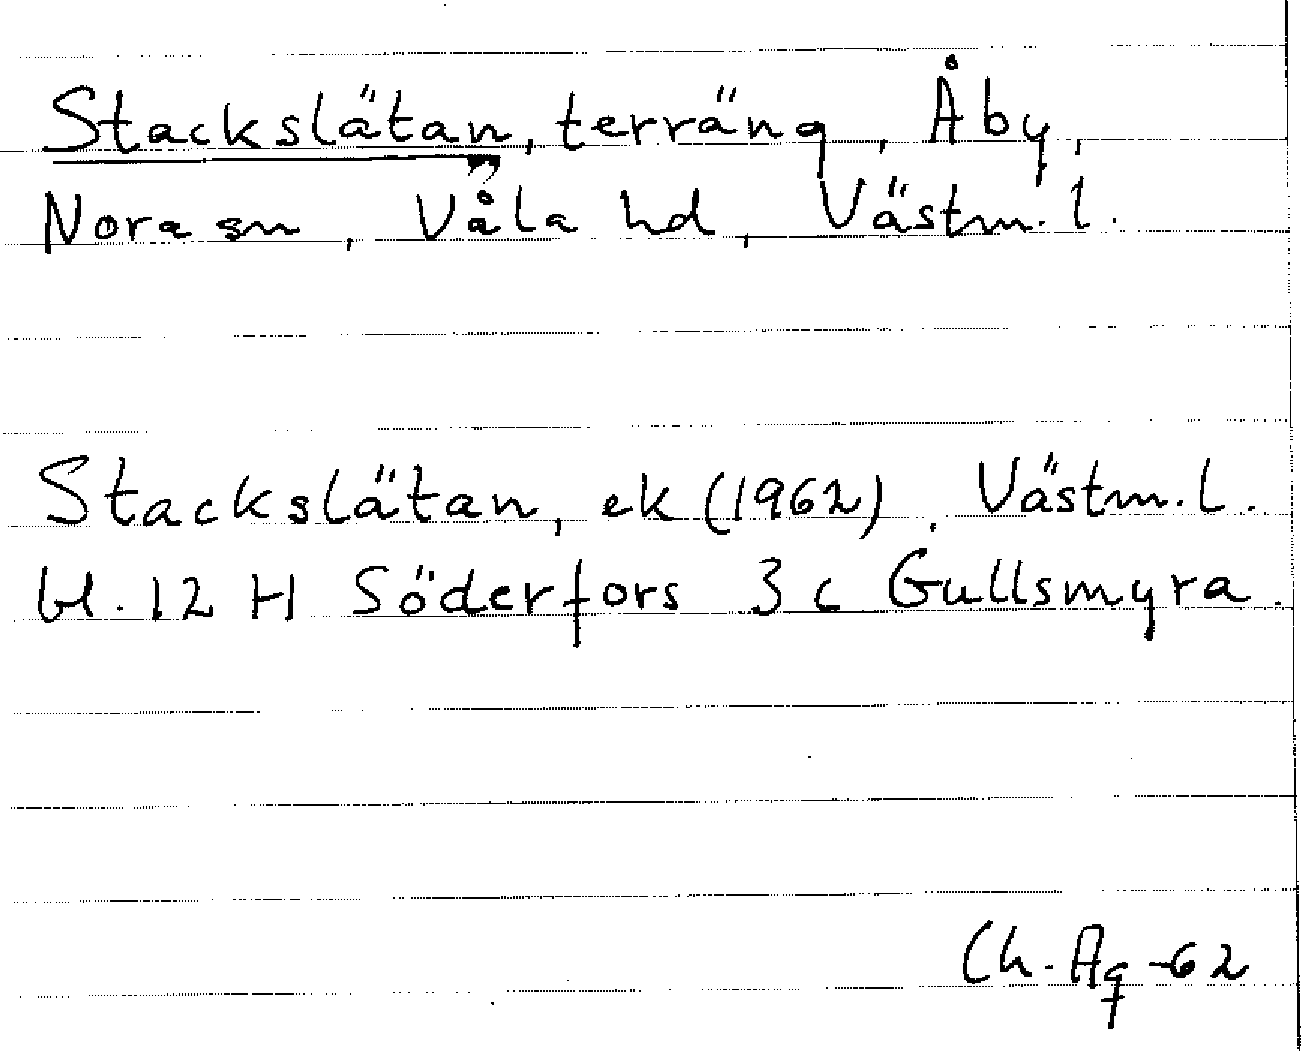 Stackslätan, terräng, Åby,
Nora sn, Våla hd, Västm. l.
Stackslätan, ek (1962). Västm. l.
bl. 12 H Söderfors 3 c Gullsmyra.
Ch. Ag -62